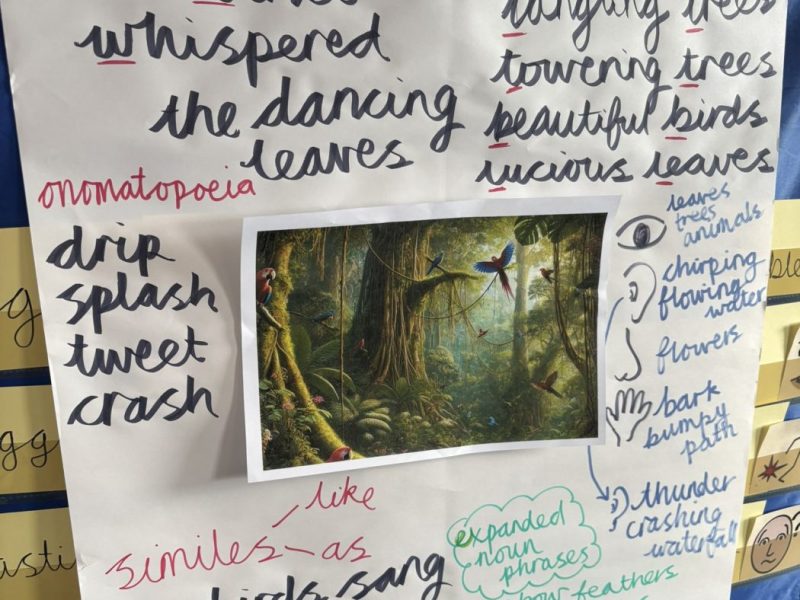 whispered
the dancing
leaves
trees
towering trees
beautiful birds
lucious leaves
onomatopoeia
drip
splash
tweet
crash
leaves
trees
animals
chirping
flowing
water
flowers
bark
bumpy
path
thunder
crashing
waterfall
like
similes
as
sang
expanded
noun
phrases
feathers